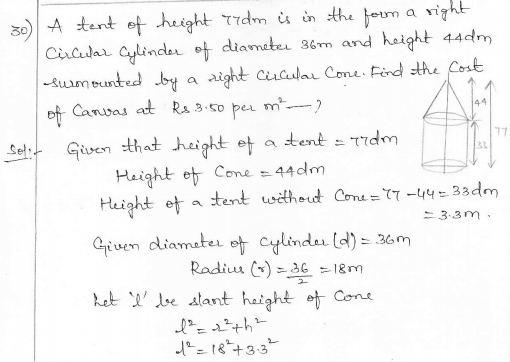 30) A tent of height 77dm is in the form a right
Circular Cylinder of diameter 36m and height 44dm
surmounted by a right Circular Cone. Find the Cost
of Canvas at Rs 3.50 per m² —?
Sol:- Given that height of a tent = 77dm
Height of Cone = 44dm
Height of a tent without Cone = 77 - 44 = 33dm
= 3.3m.
Given diameter of cylinder (d) = 36m
Radius (r) = 36/2 = 18m
Let 'l' be slant height of Cone
l² = r² + h²
l² = 18² + 3.3²
44
33
77